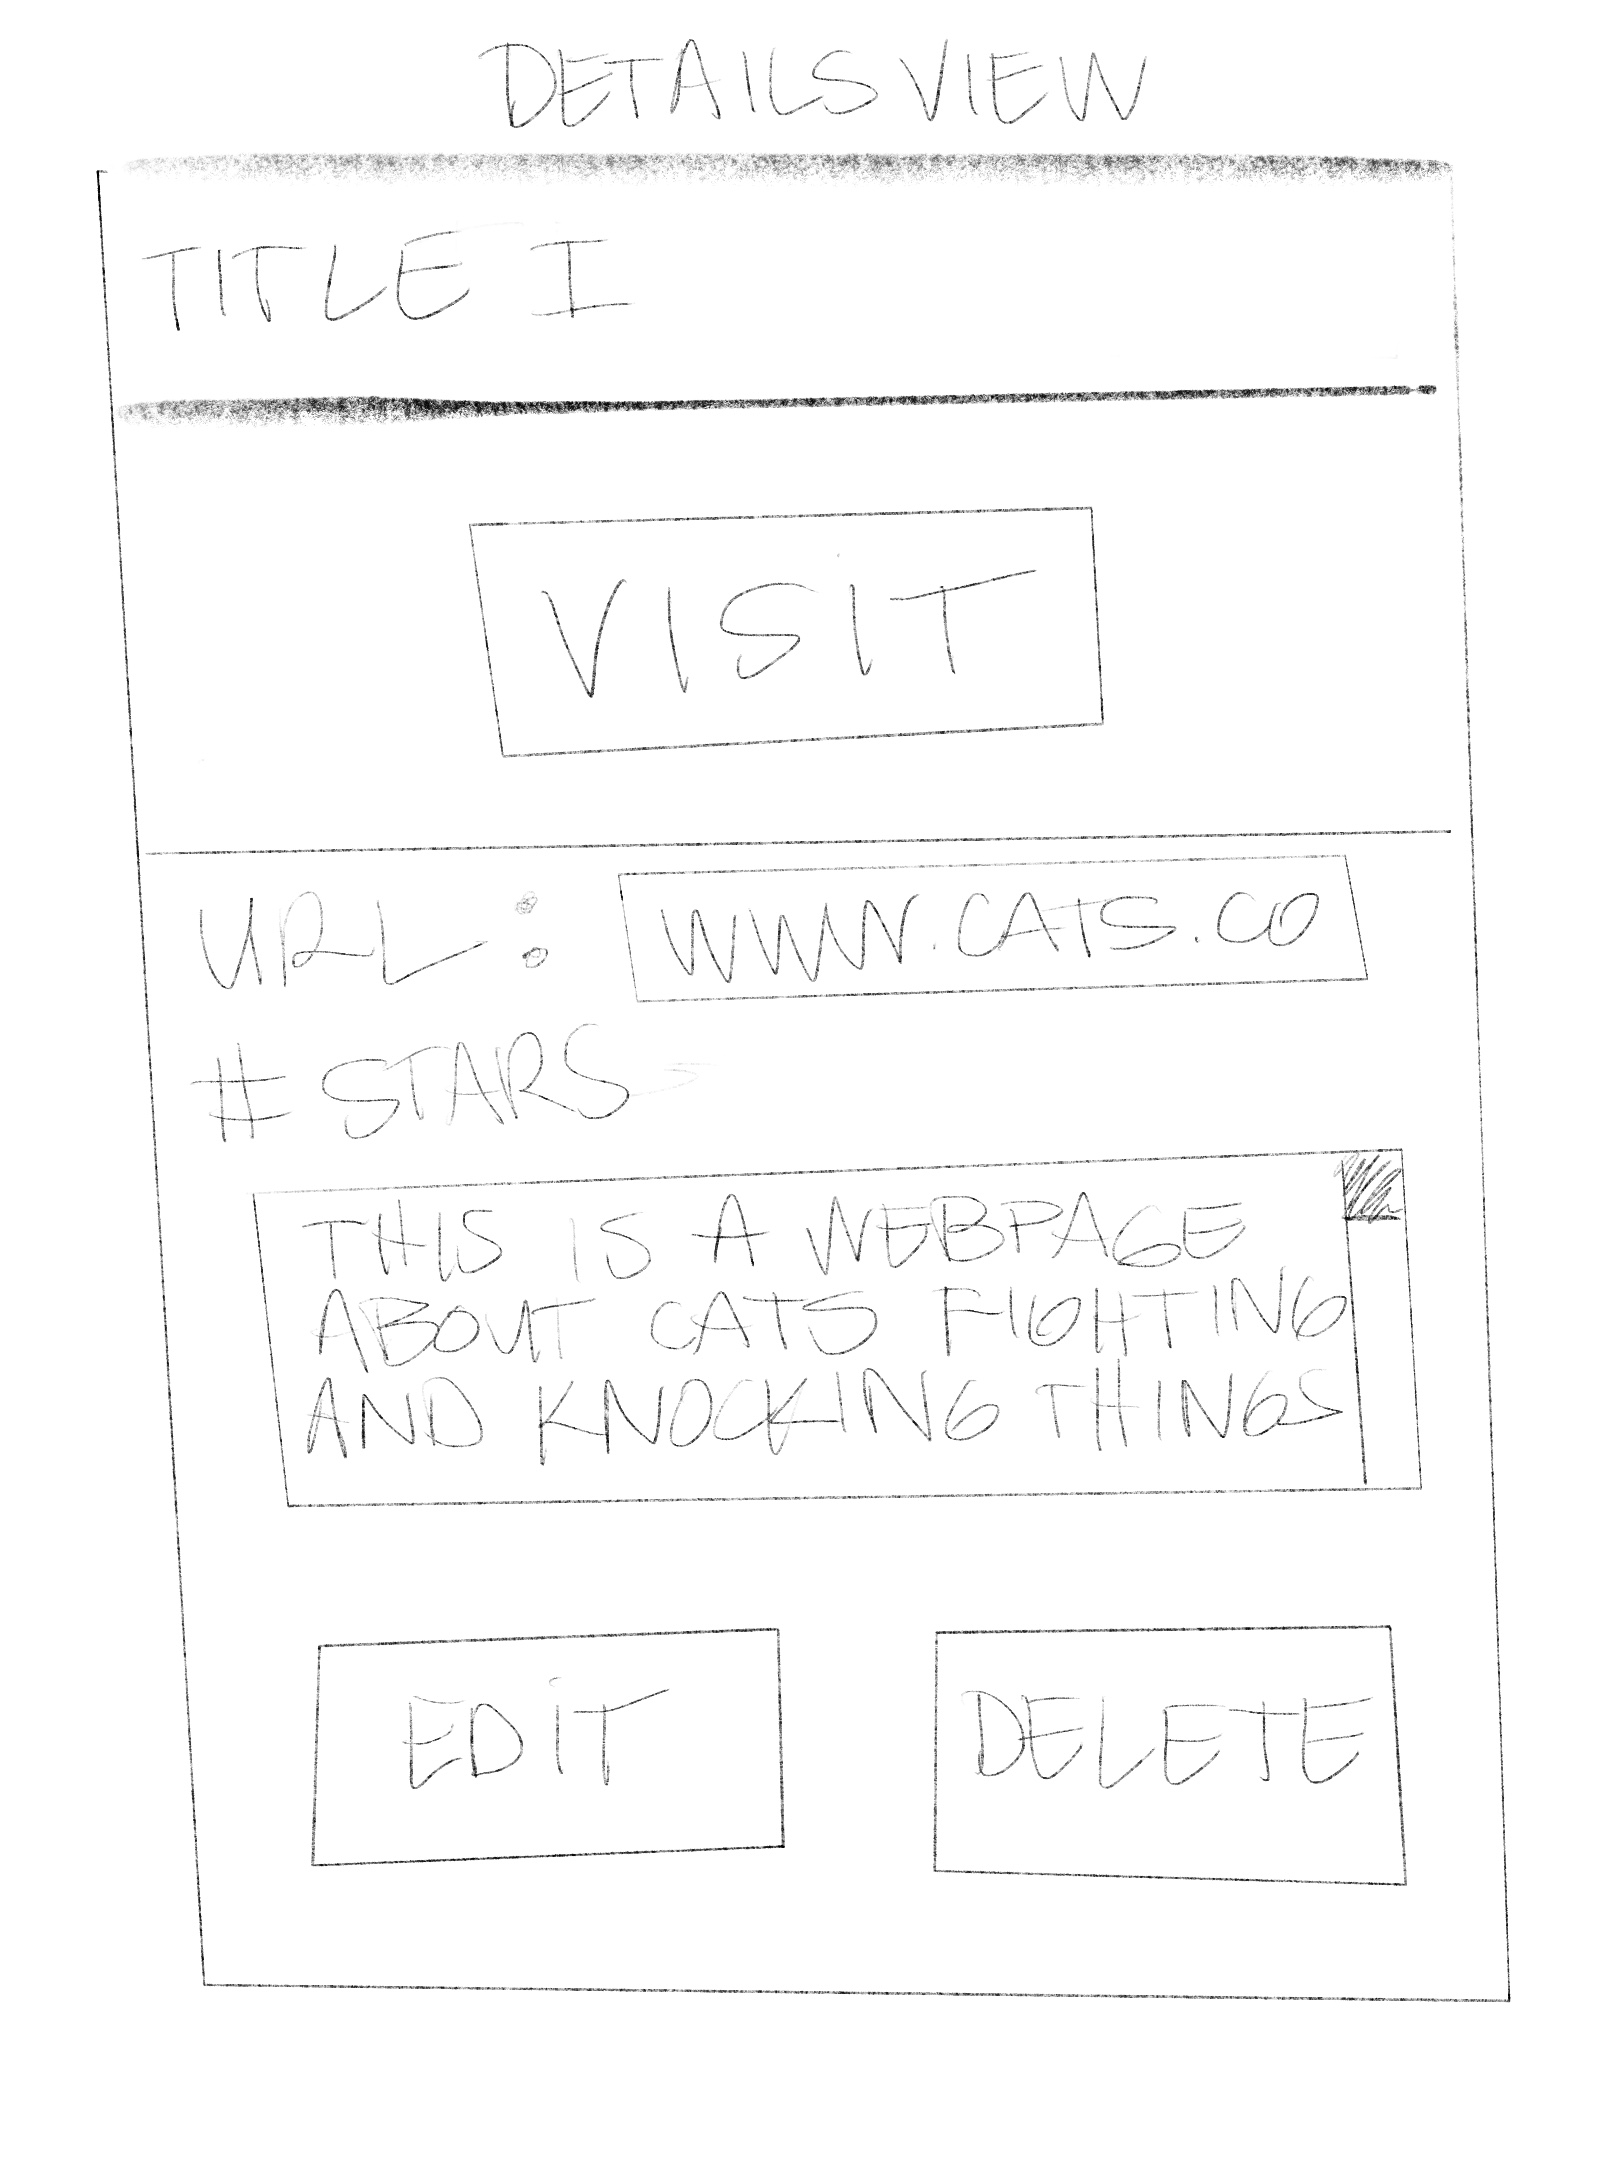 DETAILS VIEW
TITLE I
VISIT
URL: WWW.CATS.CO
# STARS
THIS IS A WEBPAGE
ABOUT CATS FIGHTING
AND KNOCKING THINGS
EDIT DELETE